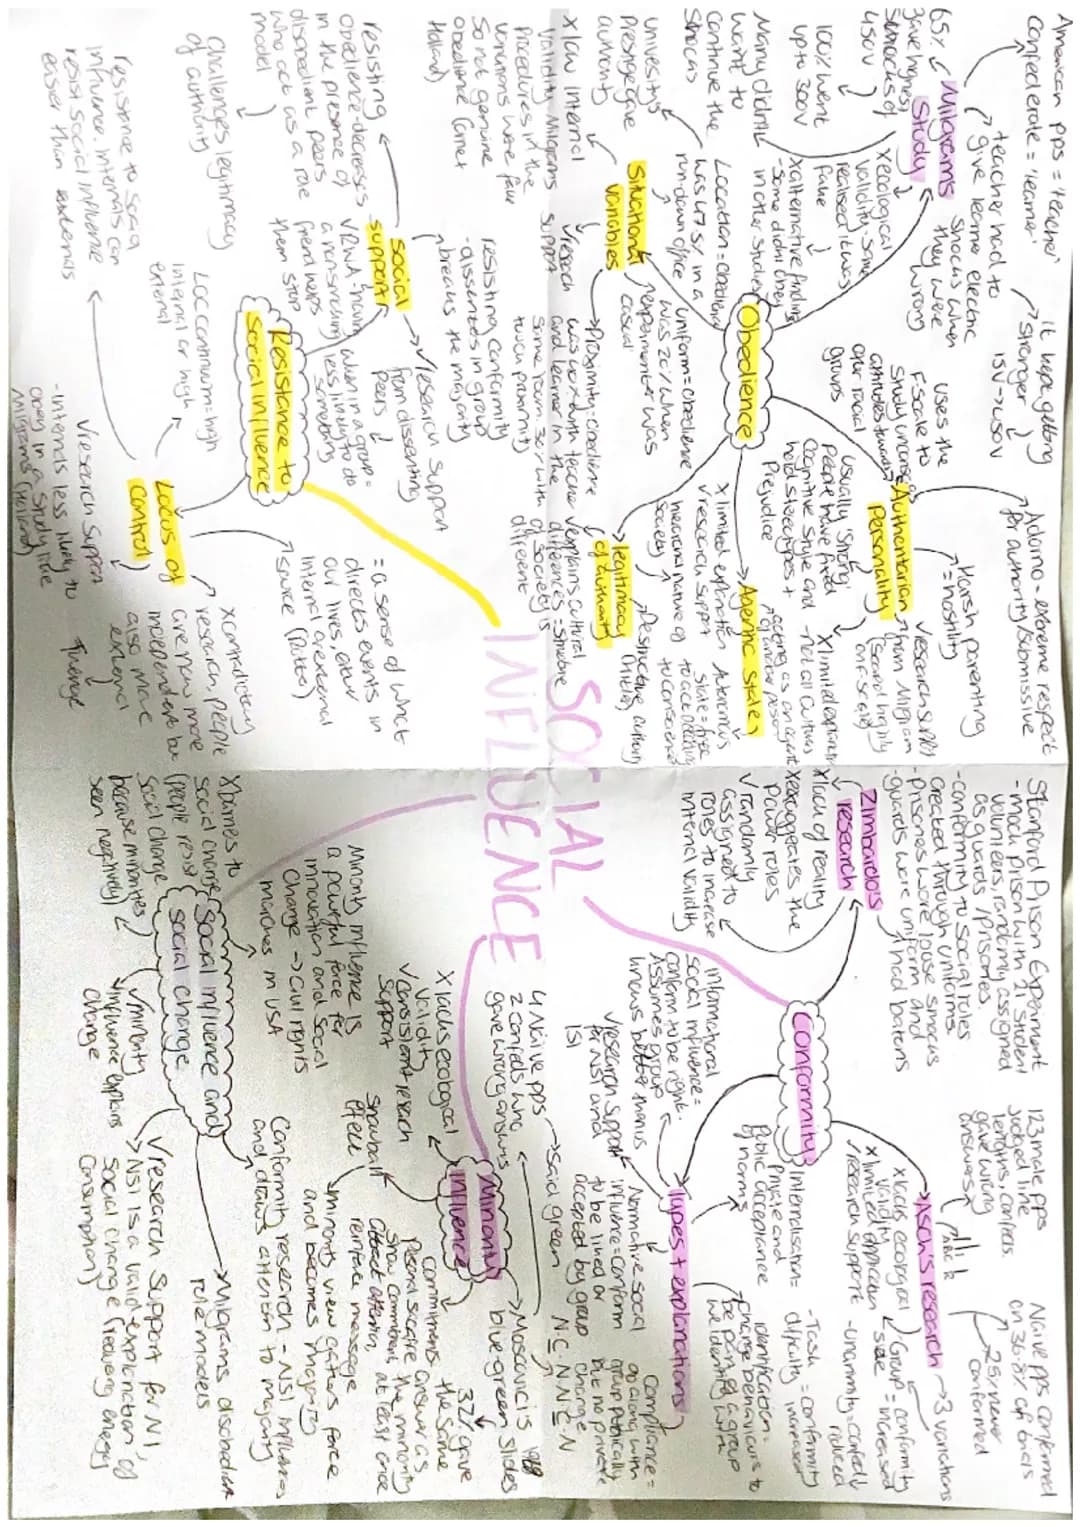 SOCIAL
INFLUENCE
Obedience
Milgrams
Study
American pps = 'teacher'
Confederate = 'learner'
teacher had to
give learner electric
shocks when
they were
wrong
it kept getting
stronger
15V → 450V
65%
gave highest
shocks of
450V
100% went
up to 300V
Many didn't
want to
continue the
shocks
X ecological
validity - some
realised it was
fake
X alternative findings
- some didn't obey
in other studies
Situational
variables
Location = obedience
was 47.5% in a
run-down office
University's
prestige gave
authority
Uniform = obedience
was 20% when
experimenter was
casual
Proximity = obedience
was worse with teacher
and learner in the
same room 30% with
touch proximity
✓ research
support
X low internal
validity Milgrams
Procedures in the
variations were fake
so not genuine
obedience (Orne +
Holland)
Authoritarian
personality
Uses the
F-scale to
study unconscious
attitudes towards
other racial
groups
Adorno - extreme respect
for authority/submissive
Harsh parenting
= hostility
✓ research support
from Milgram
(scored highly
on F-scale)
Usually 'strong'
people have fixed
cognitive style and
hold stereotypes +
Prejudice
X limited explanation
- not all cultures
Agentic state
acting as an agent
of another person
Autonomous
state = free
to act according
to conscience
X limited explanation
✓ research support
legitimacy
of authority
hierarchical nature of
society
Destructive authority
(Hitler)
✓ explains cultural
differences = structure
of society is
different
Resistance to
social influence
Social
support
✓ research support
from dissenting
Peers
resisting conformity
- dissenters in group
breaks the majority
resisting
obedience - decreases
in the presence of
disobedient peers
who act as a role
model
challenges legitimacy
of authority
when in a group =
less likely to do
something
Locus of
control
= a sense of what
directs events in
our lives, either
internal or external
(Rotter)
LOC continuum = high
internal or high
external
resistance to social
influence. Internals can
resist social influence
easier than externals
✓ research support
- internals less likely to
obey in a study like
Milgrams (Holland)
X contradictory
research, people
are now more
independent but
also more
external
Twenge
Conformity
Zimbardo's
research
Stanford Prison Experiment
- mock prison with 21 student
volunteers, randomly assigned
as guards / prisoners.
- conformity to social roles
created through uniforms.
- prisoners wore loose smocks
- guards wore uniform and
had batons
X lack of reality
X exaggerates the
power of roles
✓ randomly
assigned to
roles to increase
internal validity
Asch's research
123 male pps
judged line
lengths, confeds.
gave wrong
answers
A B C
Naive pps conformed
on 36.8% of trials
25% never
conformed
3 variations
Group = conformity
size increased
- unanimity = conformity
reduced
- Task = conformity
difficulty increased
X lacks ecological
validity
X limited application
✓ research support
Types + explanations
Internalisation =
Private and
public acceptance
of norms
identification =
change behaviours to
be part of a group
we identify with
Compliance =
go along with
group publically
but no private
change
Informational
social influence =
conform to be right.
Assumes group
knows better than us
Normative social
influence = conform
to be liked or
accepted by group
✓ research support
for NSI and
ISI
Minority
influence
Moscovici's 1969
blue green slides
4 Naive pps
2 confeds who
gave wrong answers
said green
N C N N C N
32% gave
the same
answer as
the minority
at least once
Commitment =
Personal sacrifice
show commitment,
attract attention,
reinforce message
minority view gathers force
and becomes majority
snowball
effect
X lacks ecological
validity
✓ consistent research
support
Social influence and
social change
Minority influence is
a powerful force for
innovation and social
change → civil rights
marches in USA
Conformity research - NSI influences
and draws attention to majority
Milgrams disobedient
role models
✓ research support for NSI,
NSI is a valid explanation of
social change (reducing energy
consumption)
✓ minority
influence explains
change
X barriers to
social change
(people resist
social change
because minorities
seen negatively)